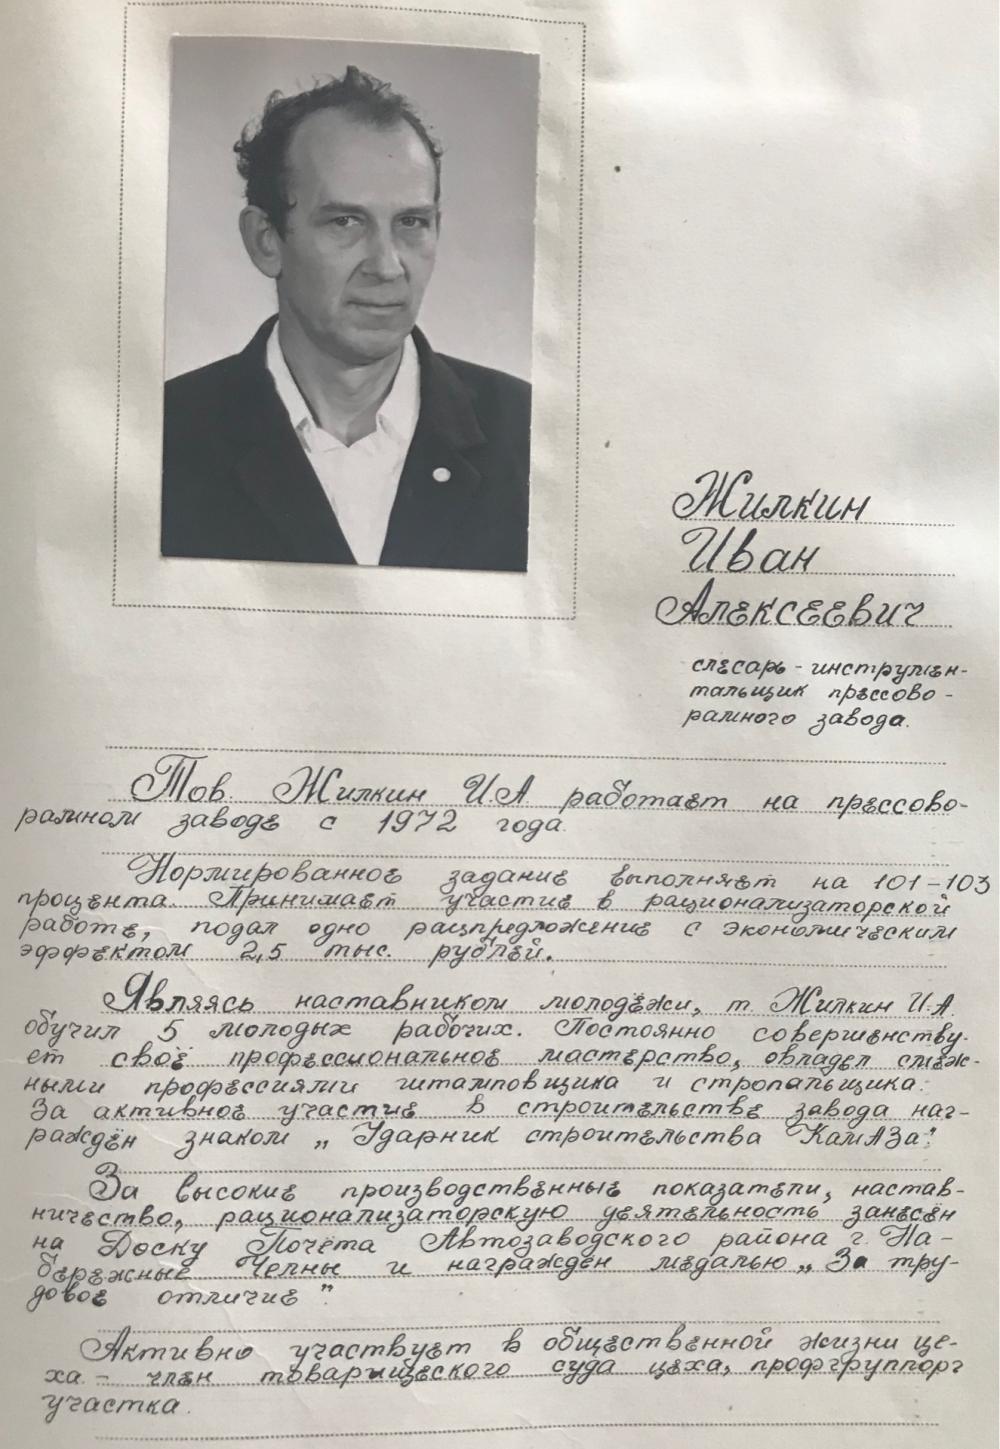 Жилкин
Иван
Алексеевич
слесарь - инструмен-
тальщик прессово -
рамного завода.
Тов. Жилкин И.А работает на прессово-
рамном заводе с 1972 года.
Нормированное задание выполняет на 101-103
процента. Принимает участие в рационализаторской
работе, подал одно рацпредложение с экономическим
эффектом 2,5 тыс. рублей.
Являясь наставником молодёжи, т. Жилкин И.А.
обучил 5 молодых рабочих. Постоянно совершенству-
ет своё профессиональное мастерство, овладел смеж-
ными профессиями штамповщика и стропальщика.
За активное участие в строительстве завода наг-
раждён знаком „Ударник строительства КамАЗа".
За высокие производственные показатели, настав-
ничество, рационализаторскую деятельность занесён
на Доску Почёта Автозаводского района г. На-
бережные Челны и награждён медалью „За тру-
довое отличие".
Активно участвует в общественной жизни це-
ха. - член товарищеского суда цеха, профгруппорг
участка.